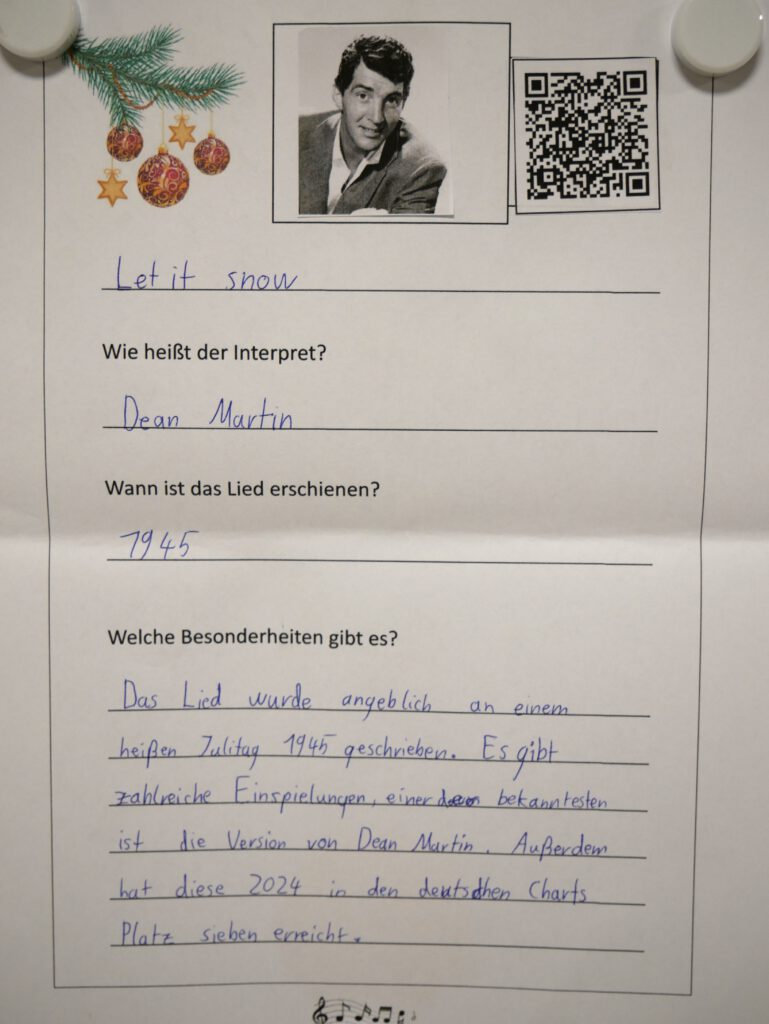 Let it snow
Wie heißt der Interpret?
Dean Martin
Wann ist das Lied erschienen?
1945
Welche Besonderheiten gibt es?
Das Lied wurde angeblich an einem
heißen Julitag 1945 geschrieben. Es gibt
zahlreiche Einspielungen, einer der bekanntesten
ist die Version von Dean Martin. Außerdem
hat diese 2024 in den deutschen Charts
Platz sieben erreicht.